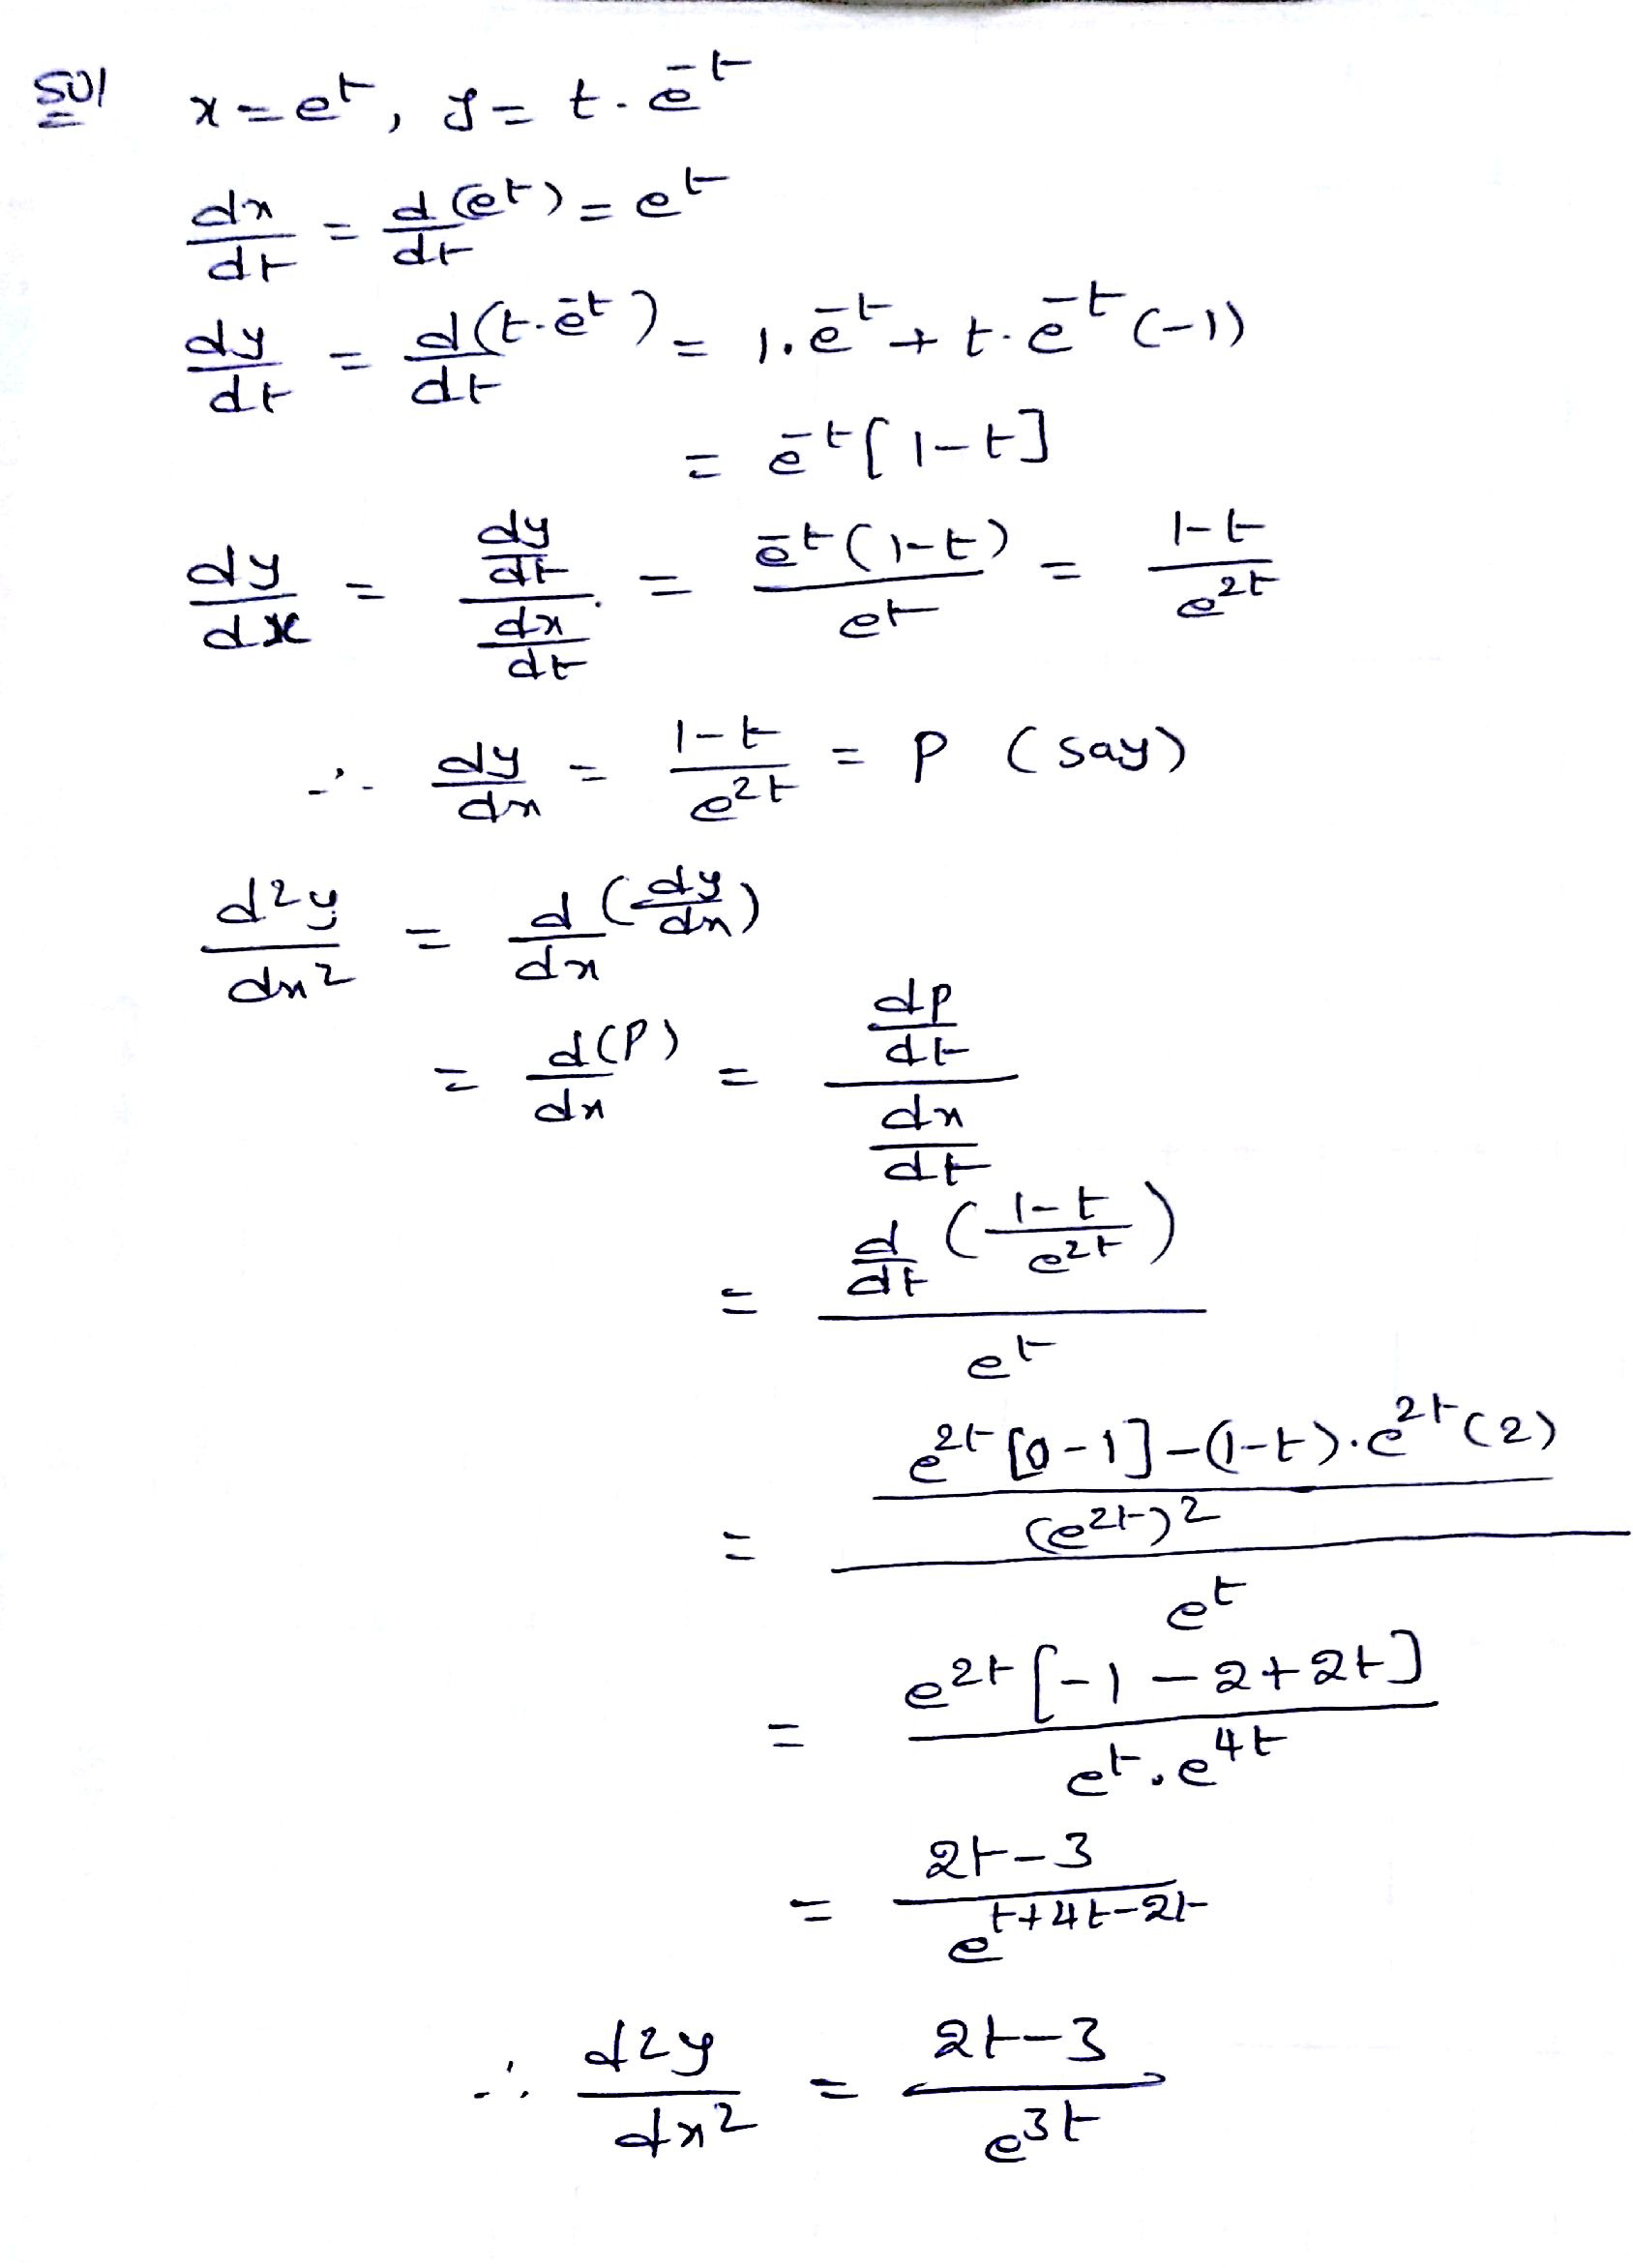 Sol x = e^t, y = t.e^-t
dx/dt = d(e^t)/dt = e^t
dy/dt = d(t.e^-t)/dt = 1.e^-t + t.e^-t(-1)
= e^-t[1-t]
dy/dx = (dy/dt)/(dx/dt) = e^-t(1-t)/e^t = (1-t)/e^2t
∴ dy/dx = (1-t)/e^2t = P (say)
d²y/dx² = d/dx(dy/dx)
= d(P)/dx = (dP/dt)/(dx/dt)
= d/dt((1-t)/e^2t)/e^t
= ((e^2t[0-1]-(1-t).e^2t(2))/(e^2t)²)/e^t
= e^2t[-1-2+2t]/(e^t.e^4t)
= (2t-3)/e^(t+4t-2t)
∴ d²y/dx² = (2t-3)/e^3t